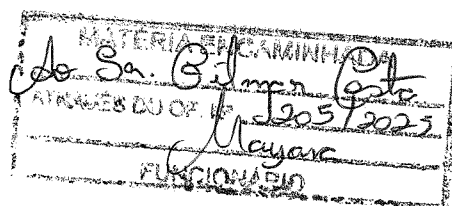 MATÉRIA ENCAMINHADA
Ao Sr. Gilmar Costa
ATRAVÉS DO OF. Nº 1205/2025
Mayara
FUNCIONÁRIO